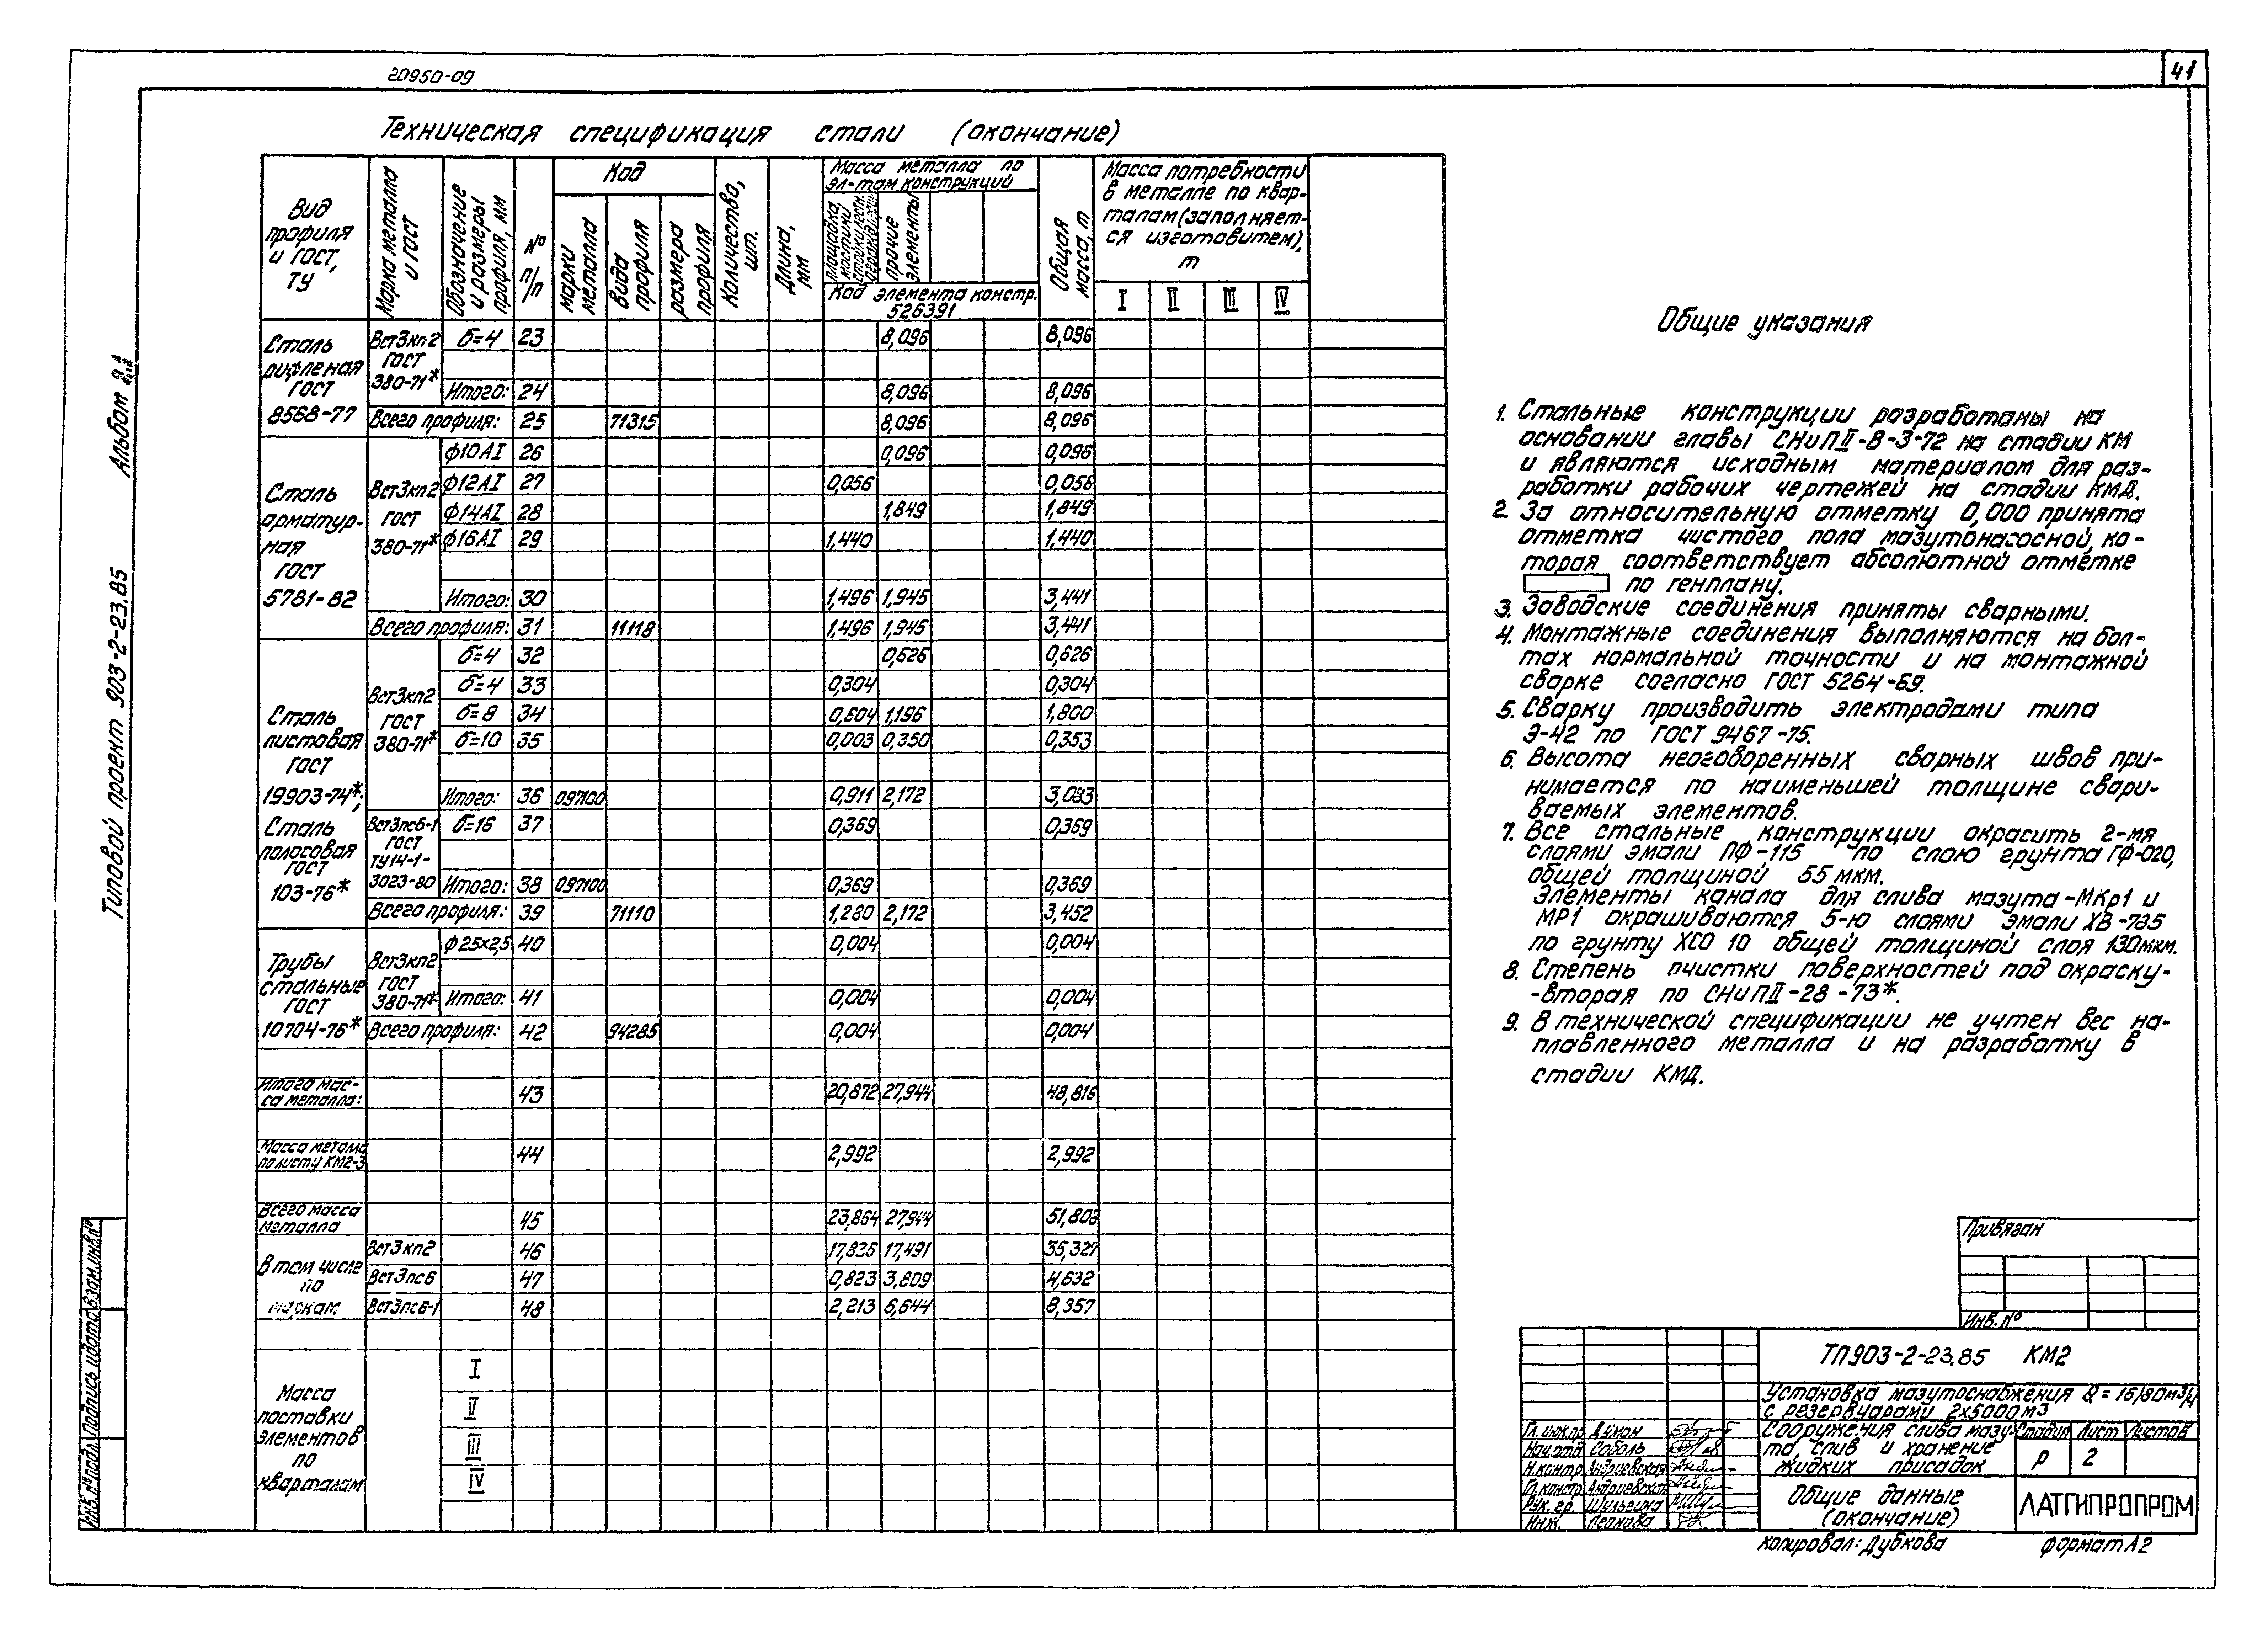 20950-09
41
Альбом 9.1
Типовой проект 903-2-23.85
Техническая спецификация стали (окончание)
Вид профиля и ГОСТ, ТУ
Марка металла и ГОСТ
Обозначение и размеры профиля, мм
№ п/п
Код
марки металла
вида профиля
размера профиля
Количество, шт.
Длина, мм
Масса металла по эл-там конструкций
прочие элементы
Код элемента констр.
526391
Общая масса, т
Масса потребности в металле по кварталам (заполняется изготовитем), т
I II III IV
Сталь рифленая ГОСТ 8568-77
ВСт3кп2 ГОСТ 380-71*
б=4 23 8,096 8,096
Итого: 24 8,096 8,096
Всего профиля: 25 71315 8,096 8,096
Сталь арматурная ГОСТ 5781-82
ВСт3кп2 ГОСТ 380-71*
ф10АI 26 0,096 0,096
ф12АI 27 0,056 0,056
ф14АI 28 1,849 1,849
ф16АI 29 1,440 1,440
Итого: 30 1,496 1,945 3,441
Всего профиля: 31 11118 1,496 1,945 3,441
Сталь листовая ГОСТ 19903-74*;
Сталь полосовая ГОСТ 103-76*
ВСт3кп2 ГОСТ 380-71*
б=4 32 0,626 0,626
б=4 33 0,304 0,304
б=8 34 0,604 1,196 1,800
б=10 35 0,003 0,350 0,353
Итого: 36 097100 0,911 2,172 3,083
ВСт3пс6-1 ГОСТ ТУ14-1-3023-80
б=16 37 0,369 0,369
Итого: 38 097100 0,369 0,369
Всего профиля: 39 71110 1,280 2,172 3,452
Трубы стальные ГОСТ 10704-76*
ВСт3кп2 ГОСТ 380-71*
ф25х2,5 40 0,004 0,004
Итого: 41 0,004 0,004
Всего профиля: 42 94285 0,004 0,004
Итого масса металла: 43 20,872 27,944 48,816
Масса металла по листу КМ2-3 44 2,992 2,992
Всего масса металла 45 23,864 27,944 51,808
В том числе по маркам
ВСт3кп2 46 17,836 17,491 35,327
ВСт3пс6 47 0,823 3,809 4,632
ВСт3пс6-1 48 2,213 6,644 8,357
Масса поставки элементов по кварталам
I
II
III
IV
Общие указания
1. Стальные конструкции разработаны на
основании главы СНиП II-В-3-72 на стадии КМ
и являются исходным материалом для раз-
работки рабочих чертежей на стадии КМД.
2. За относительную отметку 0,000 принята
отметка чистого пола мазутонасосной, ко-
торая соответствует абсолютной отметке
по генплану.
3. Заводские соединения приняты сварными.
4. Монтажные соединения выполняются на бол-
тах нормальной точности и на монтажной
сварке согласно ГОСТ 5264-69.
5. Сварку производить электродами типа
Э-42 по ГОСТ 9467-75.
6. Высота неоговоренных сварных швов при-
нимается по наименьшей толщине свари-
ваемых элементов.
7. Все стальные конструкции окрасить 2-мя
слоями эмали ПФ-115 по слою грунта ГФ-020,
общей толщиной 55 мкм.
Элементы канала для слива мазута-МКр1 и
МР1 окрашиваются 5-ю слоями эмали ХВ-785
по грунту ХСО 10 общей толщиной слоя 130мкм.
8. Степень очистки поверхностей под окраску-
-вторая по СНиП II-28-73*.
9. В технической спецификации не учтен вес на-
плавленного металла и на разработку в
стадии КМД.
Привязан
Инв. №
ТП903-2-23.85 КМ2
Установка мазутоснабжения Q=16/80м3/ч
с резервуарами 2х5000м3
Сооружения слива мазу-
та, слив и хранение
жидких присадок
Стадия Лист Листов
Р 2
Общие данные
(окончание)
ЛАТГИПРОПРОМ
Гл. инж. пр. Думан
Нач. отд. Соболь
Н. контр. Андриевская
Гл. констр. Андриевская
Рук. гр. Шульгина
Инж. Леонова
Копировал: Дубкова
формат А2
Инв. № подл. Подпись и дата Взам. инв. №